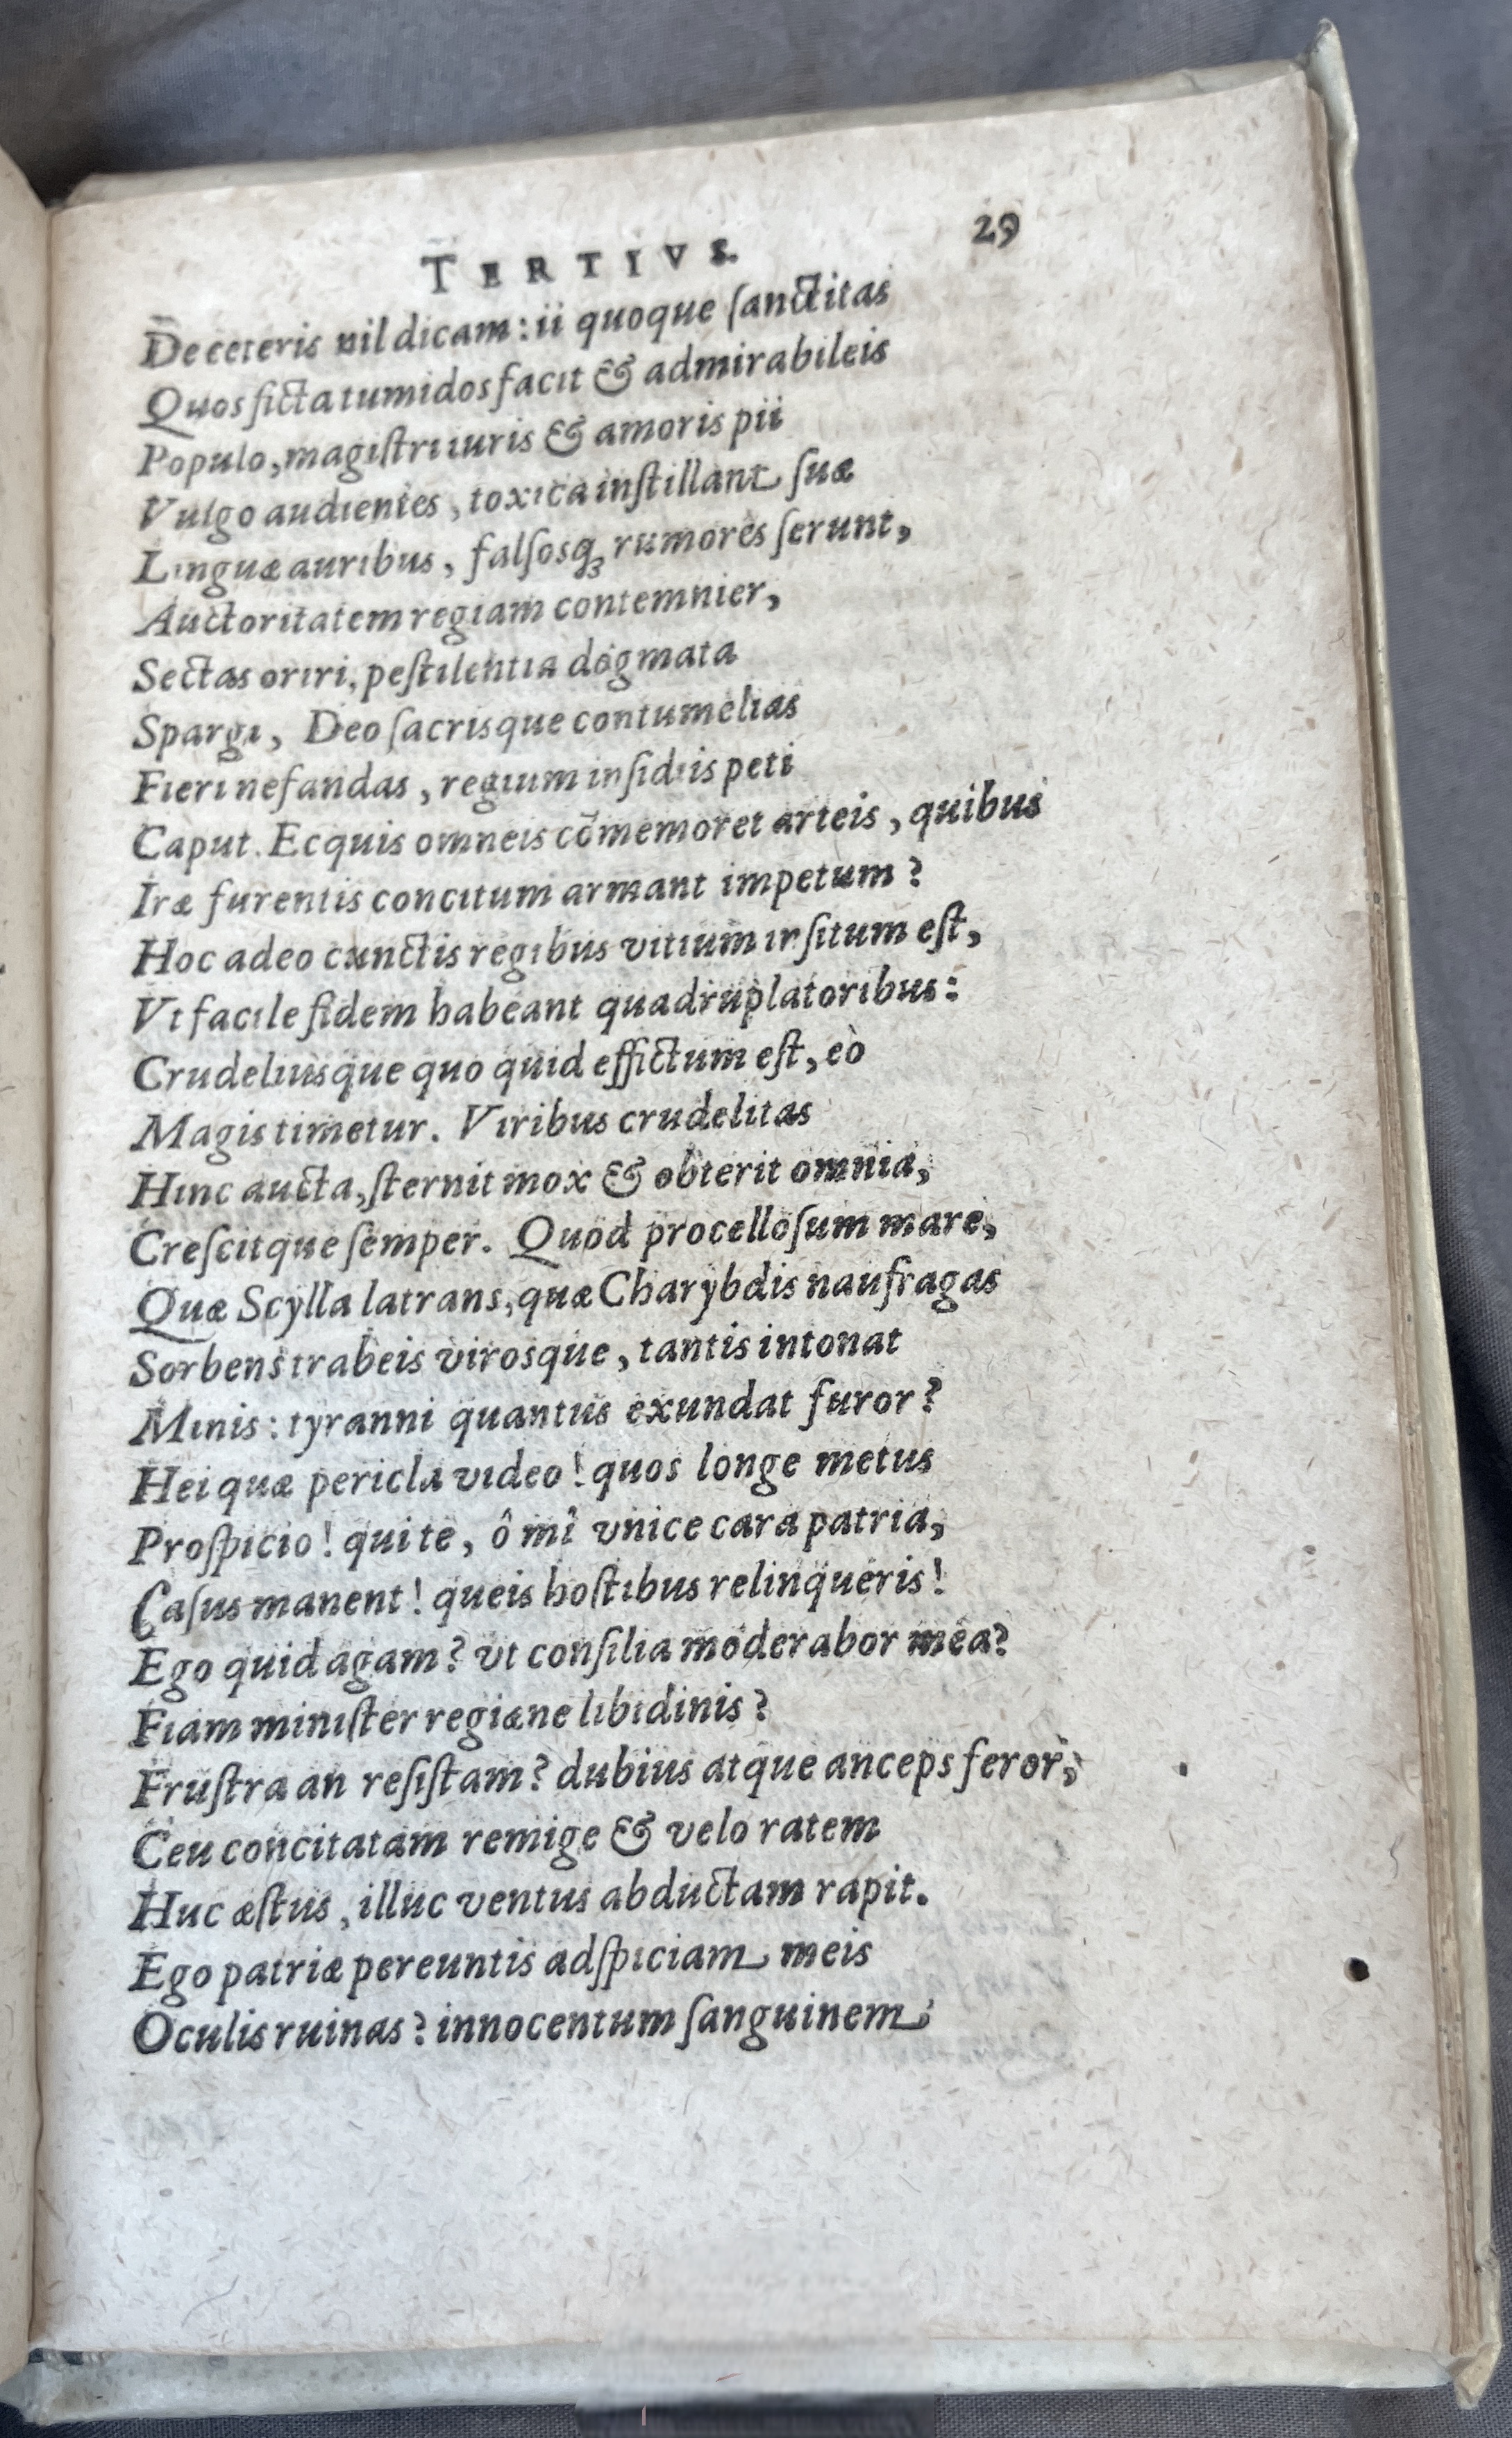 TERTIVS. 29
De ceteris nil dicam: ii quoque ſanctitas
Quos ficta tumidos facit & admirabileis
Populo, magiſtri iuris & amoris pii
Vulgo audientes, toxica inſtillant ſuæ
Linguæ auribus, falſosq; rumores ſerunt,
Auctoritatem regiam contemnier,
Sectas oriri, peſtilentia dogmata
Spargi, Deo ſacrisque contumelias
Fieri nefandas, regium inſidiis peti
Caput. Ecquis omneis cōmemoret arteis, quibus
Iræ furentis concitum armant impetum?
Hoc adeo cunctis regibus vitium inſitum eſt,
Vt facile fidem habeant quadruplatoribus:
Crudeliusque quo quid effictum eſt, eò
Magis timetur. Viribus crudelitas
Hinc aucta, ſternit mox & obterit omnia,
Creſcitque ſemper. Quod procelloſum mare,
Quæ Scylla latrans, quæ Charybdis naufragas
Sorbens trabeis virosque, tantis intonat
Minis: tyranni quantus exundat furor?
Hei quæ pericla video! quos longe metus
Proſpicio! qui te, ô mî vnice cara patria,
Caſus manent! queis hoſtibus relinqueris!
Ego quid agam? vt conſilia moderabor mea?
Fiam miniſter regiæne libidinis?
Fruſtra an reſiſtam? dubius atque anceps feror,
Ceu concitatam remige & velo ratem
Huc æſtus, illuc ventus abductam rapit.
Ego patriæ pereuntis adſpiciam meis
Oculis ruinas? innocentum ſanguinem